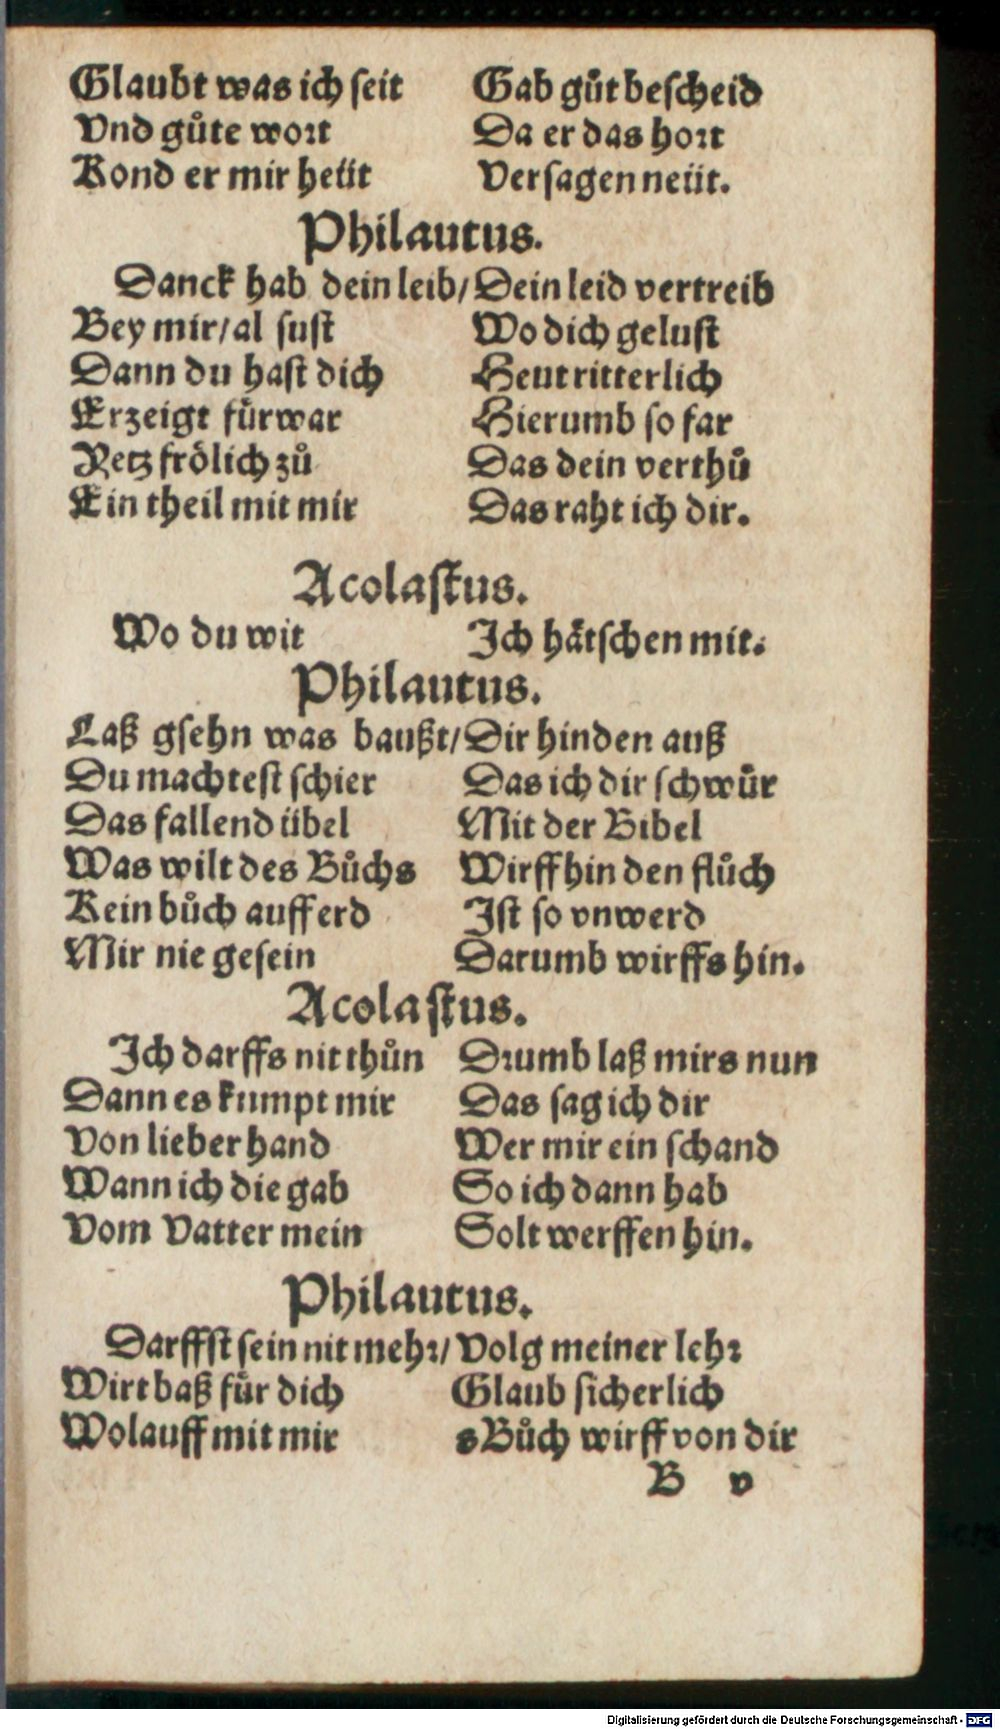 Glaubt was ich seit Gab gůt bescheid
Vnd gůte wort Da er das hort
Kond er mir heüt Versagen neüt.
Philautus.
Danck hab dein leib/ Dein leid vertreib
Bey mir/ al sust Wo dich gelust
Dann du hast dich Heut ritterlich
Erzeigt fürwar Hierumb so far
Yetz frölich zů Das dein verthů
Ein theil mit mir Das raht ich dir.
Acolastus.
Wo du wit Ich hätschen mit.
Philautus.
Laß gsehn was baußt/ Dir hinden auß
Du machtest schier Das ich dir schwür
Das fallend übel Mit der Bibel
Was wilt des Bůchs Wirff hin den flůch
Kein bůch auff erd Ist so vnwerd
Mir nie gesein Darumb wirffs hin.
Acolastus.
Ich darffs nit thůn Drumb laß mirs nun
Dann es kumpt mir Das sag ich dir
Von lieber hand Wer mir ein schand
Wann ich die gab So ich dann hab
Vom Vatter mein Solt werffen hin.
Philautus.
Darffst sein nit mehr/ Volg meiner lehr
Wirt baß für dich Glaub sicherlich
Wolauff mit mir sBůch wirff von dir
B v
Digitalisierung gefördert durch die Deutsche Forschungsgemeinschaft - DFG